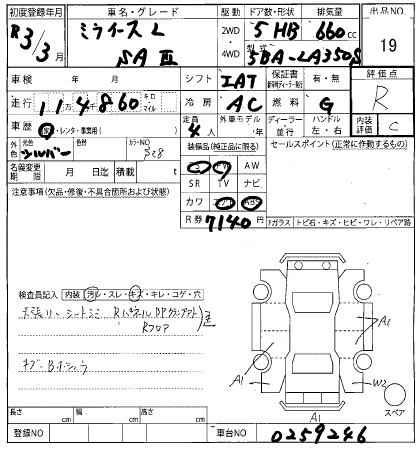 初度登録年月 車名・グレード 駆動 ドア数・形状 排気量 出品NO
R3/3月 ミライース L SAⅢ 2WD・4WD 5HB 660cc 19
型式 5BA-LA350S
車検 年 月 シフト IAT 保証書 有・無 評価点 R
走行 11万4860 キロ・マイル 冷房 AC 燃料 G
車歴 自家・レンタ・事業用( ) 定員 4人 外車モデル 年 ディーラー 並行 ハンドル 左・右 内装 C
外色 シルバー 色替 カラーNO S28 装備品(純正品に限る) セールスポイント(正常に作動するもの)
名義変更期限 月 日迄 積載 t PS PW AW
注意事項(欠品・修復・不具合箇所および状態) SR TV ナビ
カワ エアB ABS
R券 7140円 Fガラス トビ石・キズ・ヒビ・ワレ・リペア跡
検査員記入 内装 汚レ・スレ・キズ・キレ・コゲ・穴
天張り シートシミ Rパネル Rフロア
A1
A1 W2
スペア
A1
長さ cm 幅 cm 高さ cm
登録NO 車台NO 0259246